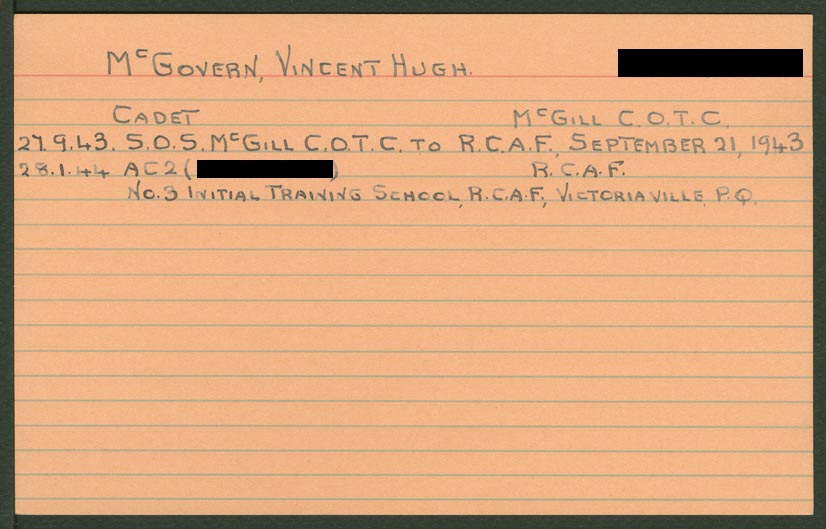 McGOVERN, VINCENT HUGH.
CADET McGILL C.O.T.C.
27.9.43. S.O.S. McGILL C.O.T.C. TO R.C.A.F., SEPTEMBER 21, 1943
28.1.44 AC2 ( ) R.C.A.F.
No. 3 INITIAL TRAINING SCHOOL, R.C.A.F., VICTORIAVILLE, P.Q.